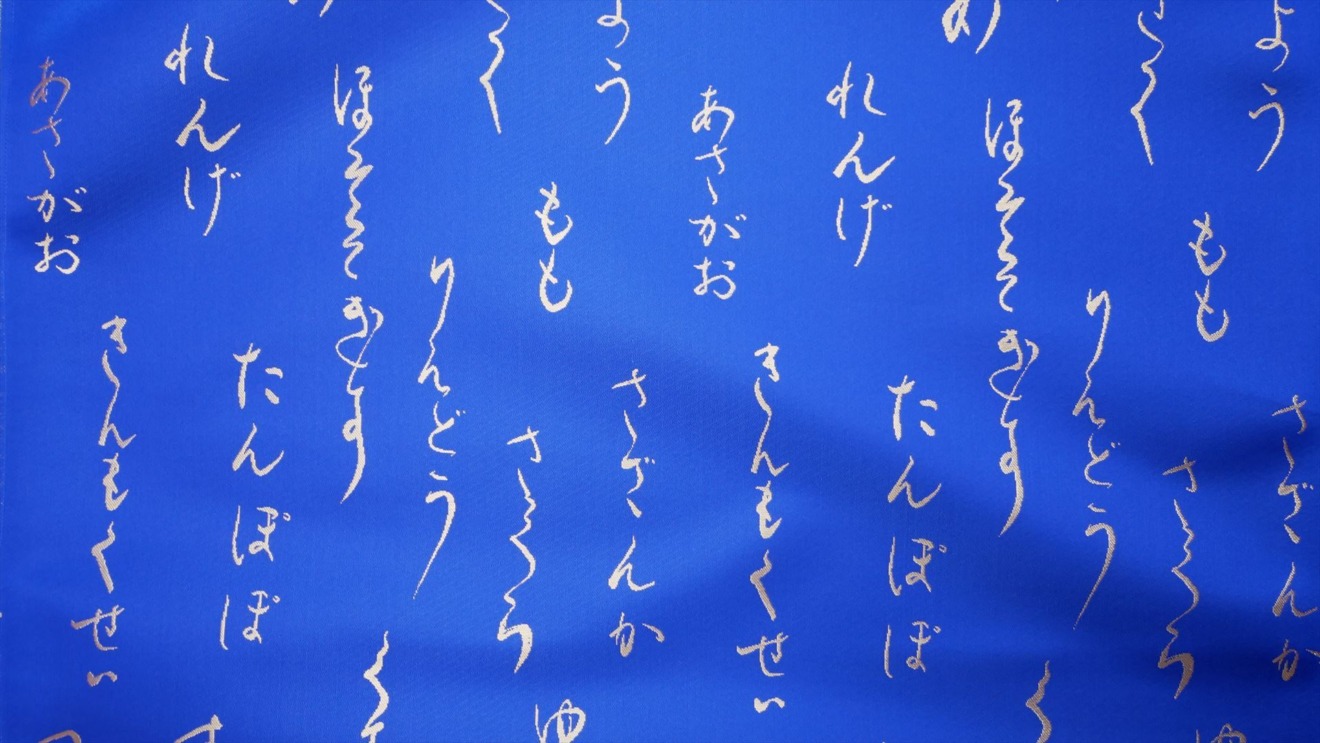 よう
さざんか
もも
さくら
ゆ
く
りんどう
ほととぎす
たんぽぽ
れんげ
きんもくせい
あさがお
よう
さざんか
もも
さくら
ゆ
く
りんどう
ほととぎす
たんぽぽ
れんげ
きんもくせい
あさがお